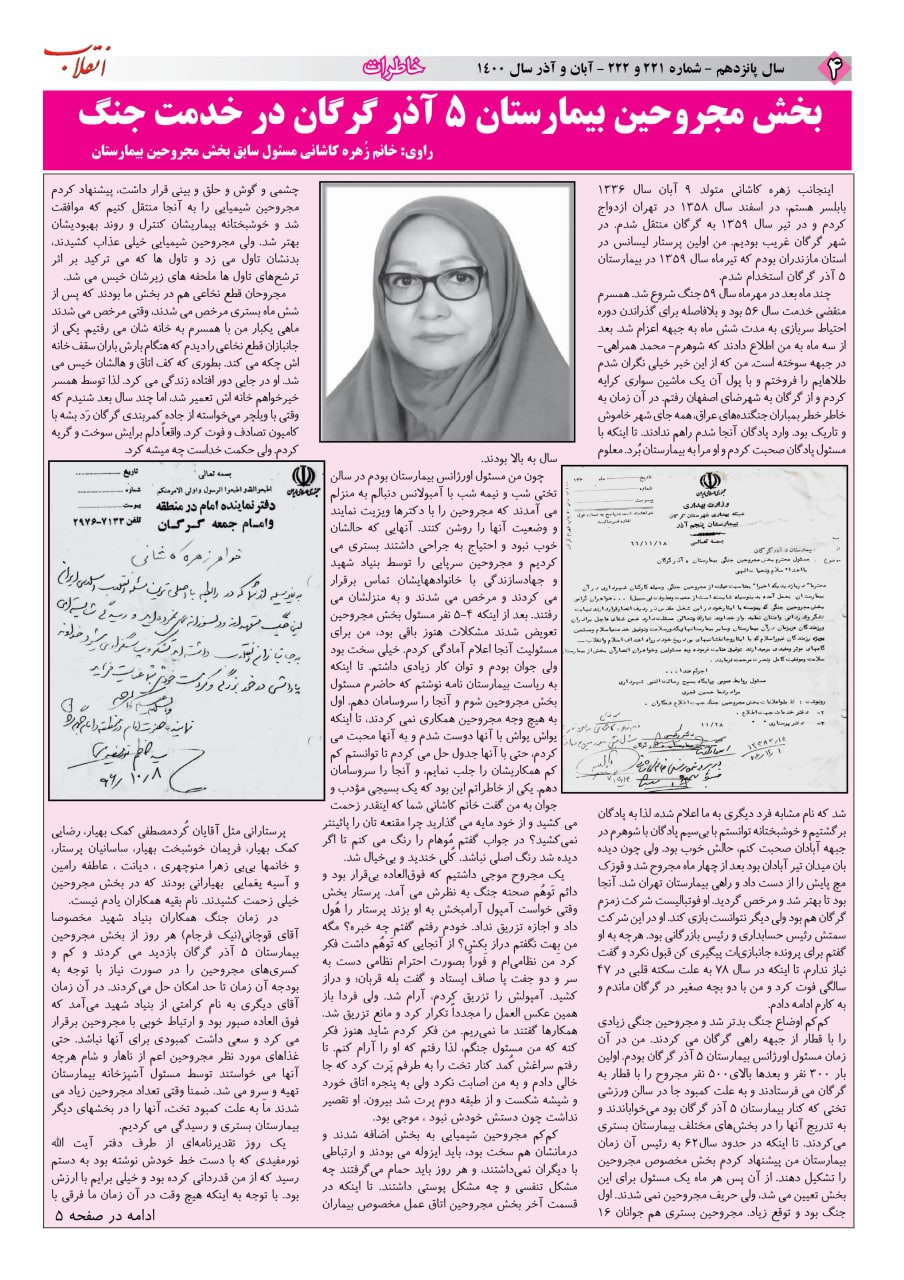 ۴
سال پانزدهم - شماره ۲۲۱ و ۲۲۲ - آبان و آذر سال ۱۴۰۰
خاطرات
انقلاب
بخش مجروحین بیمارستان ۵ آذر گرگان در خدمت جنگ
راوی: خانم زُهره کاشانی مسئول سابق بخش مجروحین بیمارستان
اینجانب زهره کاشانی متولد ۹ آبان سال ۱۳۳۶
بابلسر هستم، در اسفند سال ۱۳۵۸ در تهران ازدواج
کردم و در تیر سال ۱۳۵۹ به گرگان منتقل شدم. در
شهر گرگان غریب بودیم. من اولین پرستار لیسانس در
استان مازندران بودم که تیرماه سال ۱۳۵۹ در بیمارستان
۵ آذر گرگان استخدام شدم.
چند ماه بعد در مهرماه سال ۵۹ جنگ شروع شد. همسرم
منقضی خدمت سال ۵۶ بود و بلافاصله برای گذراندن دوره
احتیاط سربازی به مدت شش ماه به جبهه اعزام شد. بعد
از سه ماه به من اطلاع دادند که شوهرم- محمد همراهی-
در جبهه سوخته است. من که از این خبر خیلی نگران شدم
طلاهایم را فروختم و با پول آن یک ماشین سواری کرایه
کردم و از گرگان به شهرضای اصفهان رفتم. در آن زمان به
خاطر خطر بمباران جنگنده‌های عراق، همه جای شهر خاموش
و تاریک بود. وارد پادگان آنجا شدم راهم ندادند. تا اینکه با
مسئول پادگان صحبت کردم و او مرا به بیمارستان بُرد. معلوم
وزارت بهداری
شبکه بهداری شهرستان گرگان
بیمارستان پنجم آذر
بسمه تعالی
۶۶/۱۱/۱۸
شد که نام مشابه فرد دیگری به ما اعلام شده، لذا به پادگان
برگشتیم و خوشبختانه توانستم با بی‌سیم پادگان با شوهرم در
جبهه آبادان صحبت کنم، حالش خوب بود. ولی چون دیده
بان میدان تیر آبادان بود بعد از چهار ماه مجروح شد و قوزک
مچ پایش را از دست داد و راهی بیمارستان تهران شد. آنجا
بود تا بهتر شد و مرخص گردید. او فوتبالیست شرکت زمزم
گرگان هم بود ولی دیگر نتوانست بازی کند. او در این شرکت
سمتش رئیس حسابداری و رئیس بازرگانی بود. هرچه به او
گفتم برای پرونده جانبازی‌ات پیگیری کن قبول نکرد و گفت
نیاز ندارم، تا اینکه در سال ۷۸ به علت سکته قلبی در ۴۷
سالگی فوت کرد و من با دو بچه صغیر در گرگان ماندم و
به کارم ادامه دادم.
کم‌کم اوضاع جنگ بدتر شد و مجروحین جنگی زیادی
را با قطار از جبهه راهی گرگان می کردند. من در آن
زمان مسئول اورژانس بیمارستان ۵ آذر گرگان بودم. اولین
بار ۳۰۰ نفر و بعدها بالای۵۰۰ نفر مجروح را با قطار به
گرگان می فرستادند و به علت کمبود جا در سالن ورزشی
تختی که کنار بیمارستان ۵ آذر گرگان بود می‌خواباندند و
به تدریج آنها را در بخش‌های مختلف بیمارستان بستری
می‌کردند. تا اینکه در حدود سال۶۲ به رئیس آن زمان
بیمارستان من پیشنهاد کردم بخش مخصوص مجروحین
را تشکیل دهند. از آن پس هر ماه یک مسئول برای این
بخش تعیین می شد، ولی حریف مجروحین نمی شدند. اول
جنگ بود و توقع زیاد. مجروحین بستری هم جوانان ۱۶
سال به بالا بودند.
چون من مسئول اورژانس بیمارستان بودم در سالن
تختی شب و نیمه شب با آمبولانس دنبالم به منزلم
می آمدند که مجروحین را با دکترها ویزیت نمایند
و وضعیت آنها را روشن کنند. آنهایی که حالشان
خوب نبود و احتیاج به جراحی داشتند بستری می
کردیم، و مجروحین سرپایی را توسط بنیاد شهید
و جهادسازندگی با خانواده‌هایشان تماس برقرار
می کردند و مرخص می شدند و به منزلشان می
رفتند. بعد از اینکه ۴-۵ نفر مسئول بخش مجروحین
تعویض شدند مشکلات هنوز باقی بود، من برای
مسئولیت آنجا اعلام آمادگی کردم. خیلی سخت بود
ولی جوان بودم و توان کار زیادی داشتم. تا اینکه
به ریاست بیمارستان نامه نوشتم که حاضرم مسئول
بخش مجروحین شوم و آنجا را سروسامان دهم. اول
به هیچ وجه مجروحین همکاری نمی کردند، تا اینکه
یواش یواش با آنها دوست شدم و به آنها محبت می
کردم، حتی با آنها جدول حل می کردم تا توانستم کم
کم همکاریشان را جلب نمایم، و آنجا را سروسامان
دهم. یکی از خاطراتم این بود که یک بسیجی مؤدب و
جوان به من گفت خانم کاشانی شما که اینقدر زحمت
می کشید و از خود مایه می گذارید چرا مقنعه تان را پائینتر
نمی‌کشید؟ در جواب گفتم مُوهام را رنگ می کنم تا اگر
دیده شد رنگ اصلی نباشد. کُلی خندید و بی‌خیال شد.
یک مجروح موجی داشتیم که فوق‌العاده بی‌قرار بود و
دائم تَوهُم صحنه جنگ به نظرش می آمد. پرستار بخش
وقتی خواست آمپول آرامبخش به او بزند پرستار را هُول
داد و اجازه تزریق نداد. خودم رفتم گفتم چه خبره؟ مگه
من بهت نگفتم دراز بکش؟ از آنجایی که تَوهُم داشت فکر
کرد من نظامی‌ام و فوراً بصورت احترام نظامی دست به
سر و دو جفت پا صاف ایستاد و گفت بله قربان؛ و دراز
کشید. آمپولش را تزریق کردم، آرام شد. ولی فردا باز
همین عکس العمل را مجدداً تکرار کرد و مانع تزریق شد.
همکارها گفتند ما نمی‌ریم. من فکر کردم شاید هنوز فکر
کنه که من مسئول جنگم، لذا رفتم که او را آرام کنم. تا
رفتم سراغش کُمد کنار تخت را به طرفم پَرت کرد که جا
خالی دادم و به من اصابت نکرد ولی به پنجره اتاق خورد
و شیشه شکست و از طبقه دوم پرت شد بیرون. او تقصیر
نداشت چون دستش خودش نبود ، موجی بود.
کم‌کم مجروحین شیمیایی به بخش اضافه شدند و
درمانشان هم سخت بود، باید ایزوله می بودند و ارتباطی
با دیگران نمی‌داشتند، و هر روز باید حمام می‌گرفتند چه
مشکل تنفسی و چه مشکل پوستی داشتند. تا اینکه در
قسمت آخر بخش مجروحین اتاق عمل مخصوص بیماران
چشمی و گوش و حلق و بینی قرار داشت، پیشنهاد کردم
مجروحین شیمیایی را به آنجا منتقل کنیم که موافقت
شد و خوشبختانه بیماریشان کنترل و روند بهبودیشان
بهتر شد. ولی مجروحین شیمیایی خیلی عذاب کشیدند،
بدنشان تاول می زد و تاول ها که می ترکید بر اثر
ترشح‌های تاول ها ملحفه های زیرشان خیس می شد.
مجروحان قطع نخاعی هم در بخش ما بودند که پس از
شش ماه بستری مرخص می شدند، وقتی مرخص می شدند
ماهی یکبار من با همسرم به خانه شان می رفتیم. یکی از
جانبازان قطع نخاعی را دیدم که هنگام بارش باران سقف خانه
اش چکه می کند. بطوری که کف اتاق و هالشان خیس می
شد. او در جایی دور افتاده زندگی می کرد. لذا توسط همسر
خیرخواهم خانه اش تعمیر شد، اما چند سال بعد شنیدم که
وقتی با ویلچر می‌خواسته از جاده کمربندی گرگان رَد بشه با
کامیون تصادف و فوت کرد. واقعاً دلم برایش سوخت و گریه
کردم. ولی حکمت خداست چه میشه کرد.
بسمه تعالی
اطیعوالله و اطیعوا الرسول و اولی الامر منکم
دفتر نماینده امام در منطقه
و امام جمعه گرگان
تاریخ
شماره
پیوست
تلفن ۷۱۳۳-۲۹۷۶
خواهر زهره کاشانی
۶۶/۱۰/۸
پرستارانی مثل آقایان کُردمصطفی کمک بهیار، رضایی
کمک بهیار، فریمان خوشبخت بهیار، ساسانیان پرستار،
و خانمها بی‌بی زهرا منوچهری ، دیانت ، عاطفه رامین
و آسیه یغمایی بهیارانی بودند که در بخش مجروحین
خیلی زحمت کشیدند. نام بقیه همکاران یادم نیست.
در زمان جنگ همکاران بنیاد شهید مخصوصا
آقای قوچانی(نیک فرجام) هر روز از بخش مجروحین
بیمارستان ۵ آذر گرگان بازدید می کردند و کم و
کسری‌های مجروحین را در صورت نیاز با توجه به
بودجه آن زمان تا حد امکان حل می‌کردند. در آن زمان
آقای دیگری به نام کرامتی از بنیاد شهید می‌آمد که
فوق العاده صبور بود و ارتباط خوبی با مجروحین برقرار
می کرد و سعی داشت کمبودی برای آنها نباشد. حتی
غذاهای مورد نظر مجروحین اعم از ناهار و شام هرچه
آنها می خواستند توسط مسئول آشپزخانه بیمارستان
تهیه و سرو می شد. ضمنا وقتی تعداد مجروحین زیاد می
شدند ما به علت کمبود تخت، آنها را در بخشهای دیگر
بیمارستان بستری و رسیدگی می کردیم.
یک روز تقدیرنامه‌ای از طرف دفتر آیت الله
نورمفیدی که با دست خط خودش نوشته بود به دستم
رسید که از من قدردانی کرده بود و خیلی برایم با ارزش
بود. با توجه به اینکه هیچ وقت در آن زمان ما فرقی با
ادامه در صفحه ۵